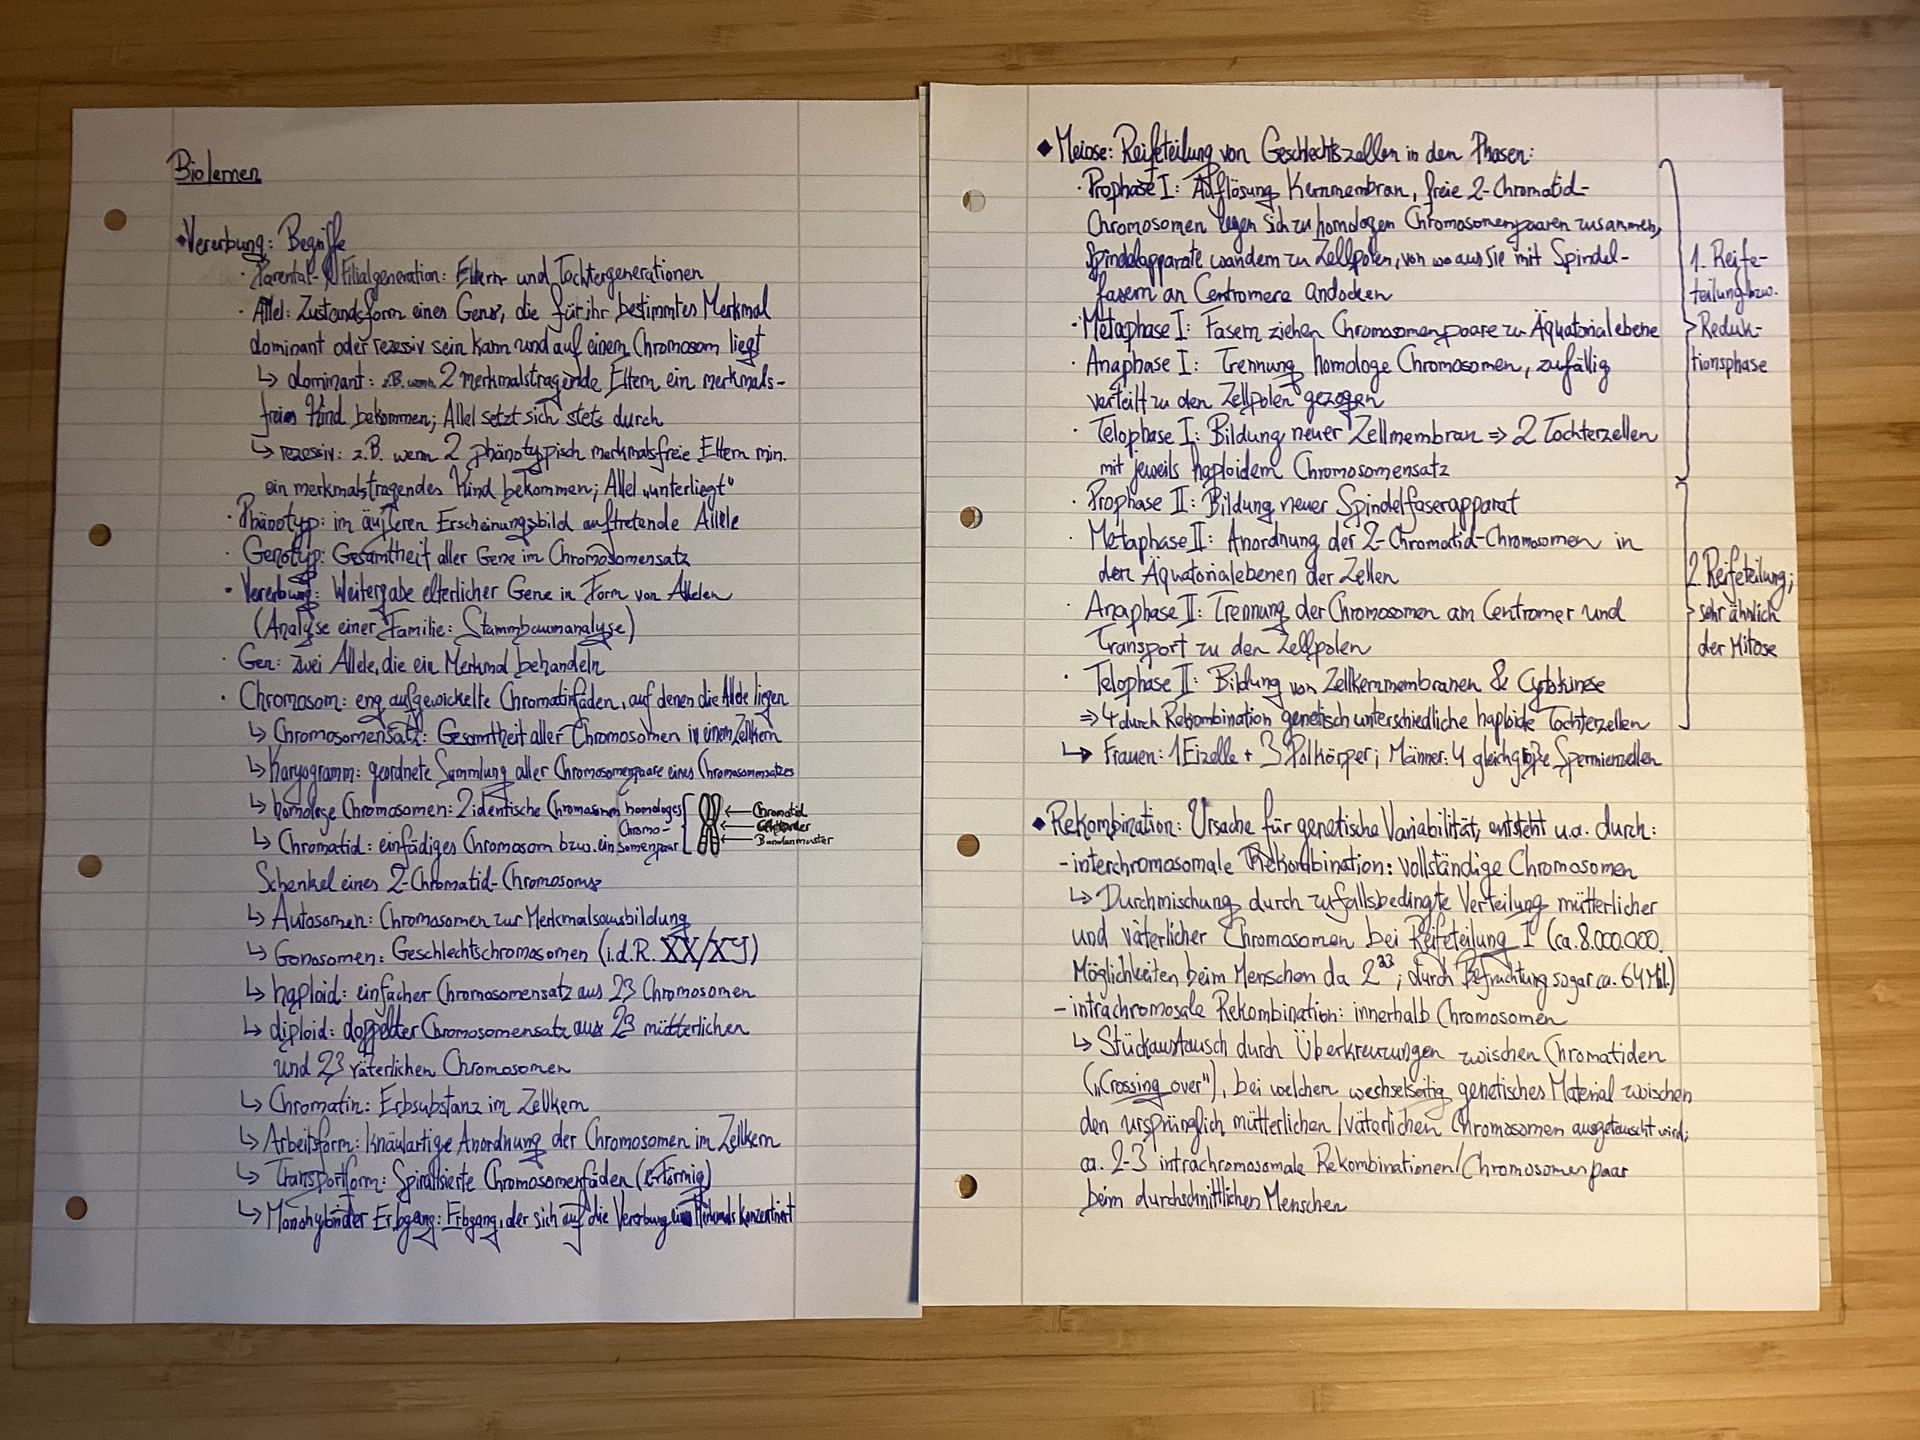 Biolernen
◆Vererbung: Begriffe
· Parental- & Filialgeneration: Eltern- und Tochtergenerationen
· Allel: Zustandsform eines Gens, die für ihr bestimmtes Merkmal
dominant oder rezessiv sein kann und auf einem Chromosom liegt
↳ dominant: z.B. wenn 2 merkmalstragende Eltern ein merkmals-
freies Kind bekommen; Allel setzt sich stets durch
↳ rezessiv: z.B. wenn 2 phänotypisch merkmalsfreie Eltern min.
ein merkmalstragendes Kind bekommen; Allel „unterliegt“
· Phänotyp: im äußeren Erscheinungsbild auftretende Allele
· Genotyp: Gesamtheit aller Gene im Chromosomensatz
· Vererbung: Weitergabe elterlicher Gene in Form von Allelen
(Analyse einer Familie: Stammbaumanalyse)
· Gen: zwei Allele, die ein Merkmal behandeln
· Chromosom: eng aufgewickelte Chromatinfäden, auf denen die Allele liegen
↳ Chromosomensatz: Gesamtheit aller Chromosomen in einem Zellkern
↳ Karyogramm: geordnete Sammlung aller Chromosomenpaare eines Chromosomensatzes
↳ homologe Chromosomen: 2 identische Chromosomen
↳ Chromatid: einfädiges Chromosom bzw. ein
Schenkel eines 2-Chromatid-Chromosoms
homologes
Chromo-
somenpaar
Chromatid
Bandenmuster
↳ Autosomen: Chromosomen zur Merkmalsausbildung
↳ Gonosomen: Geschlechtschromosomen (i.d.R. XX/XY)
↳ haploid: einfacher Chromosomensatz aus 23 Chromosomen
↳ diploid: doppelter Chromosomensatz aus 23 mütterlichen
und 23 väterlichen Chromosomen
↳ Chromatin: Erbsubstanz im Zellkern
↳ Arbeitsform: knäulartige Anordnung der Chromosomen im Zellkern
↳ Transportform: Spiralisierte Chromosomenfäden (x-förmig)
↳ Monohybrider Erbgang: Erbgang, der sich auf die Vererbung eines Merkmals konzentriert
◆ Meiose: Reifeteilung von Geschlechtszellen in den Phasen:
· Prophase I: Auflösung Kernmembran, freie 2-Chromatid-
Chromosomen legen sich zu homologen Chromosomenpaaren zusammen,
Spindelapparate wandern zu Zellpolen, von wo aus sie mit Spindel-
fasern an Centromere andocken
· Metaphase I: Fasern ziehen Chromosomenpaare zu Äquatorialebene
· Anaphase I: Trennung homologe Chromosomen, zufällig
verteilt zu den Zellpolen gezogen
· Telophase I: Bildung neuer Zellmembran ⇒ 2 Tochterzellen
mit jeweils haploidem Chromosomensatz
1. Reife-
teilung bzw.
Reduk-
tionsphase
· Prophase II: Bildung neuer Spindelfaserapparat
· Metaphase II: Anordnung der 2-Chromatid-Chromosomen in
den Äquatorialebenen der Zellen
· Anaphase II: Trennung der Chromosomen am Centromer und
Transport zu den Zellpolen
· Telophase II: Bildung von Zellkernmembranen & Cytokinese
⇒ 4 durch Rekombination genetisch unterschiedliche haploide Tochterzellen
2. Reifeteilung;
sehr ähnlich
der Mitose
↳ Frauen: 1 Eizelle + 3 Polkörper; Männer: 4 gleichgroße Spermienzellen
◆ Rekombination: Ursache für genetische Variabilität, entsteht u.a. durch:
- interchromosomale Rekombination: vollständige Chromosomen
↳ Durchmischung durch zufallsbedingte Verteilung mütterlicher
und väterlicher Chromosomen bei Reifeteilung I (ca. 8.000.000
Möglichkeiten beim Menschen da 2²³; durch Befruchtung sogar ca. 64 Mil.)
- intrachromosale Rekombination: innerhalb Chromosomen
↳ Stückaustausch durch Überkreuzungen zwischen Chromatiden
(„Crossing over“), bei welchen wechselseitig genetisches Material zwischen
den ursprünglich mütterlichen/väterlichen Chromosomen ausgetauscht wird;
ca. 2-3 intrachromosomale Rekombinationen/Chromosomenpaar
beim durchschnittlichen Menschen